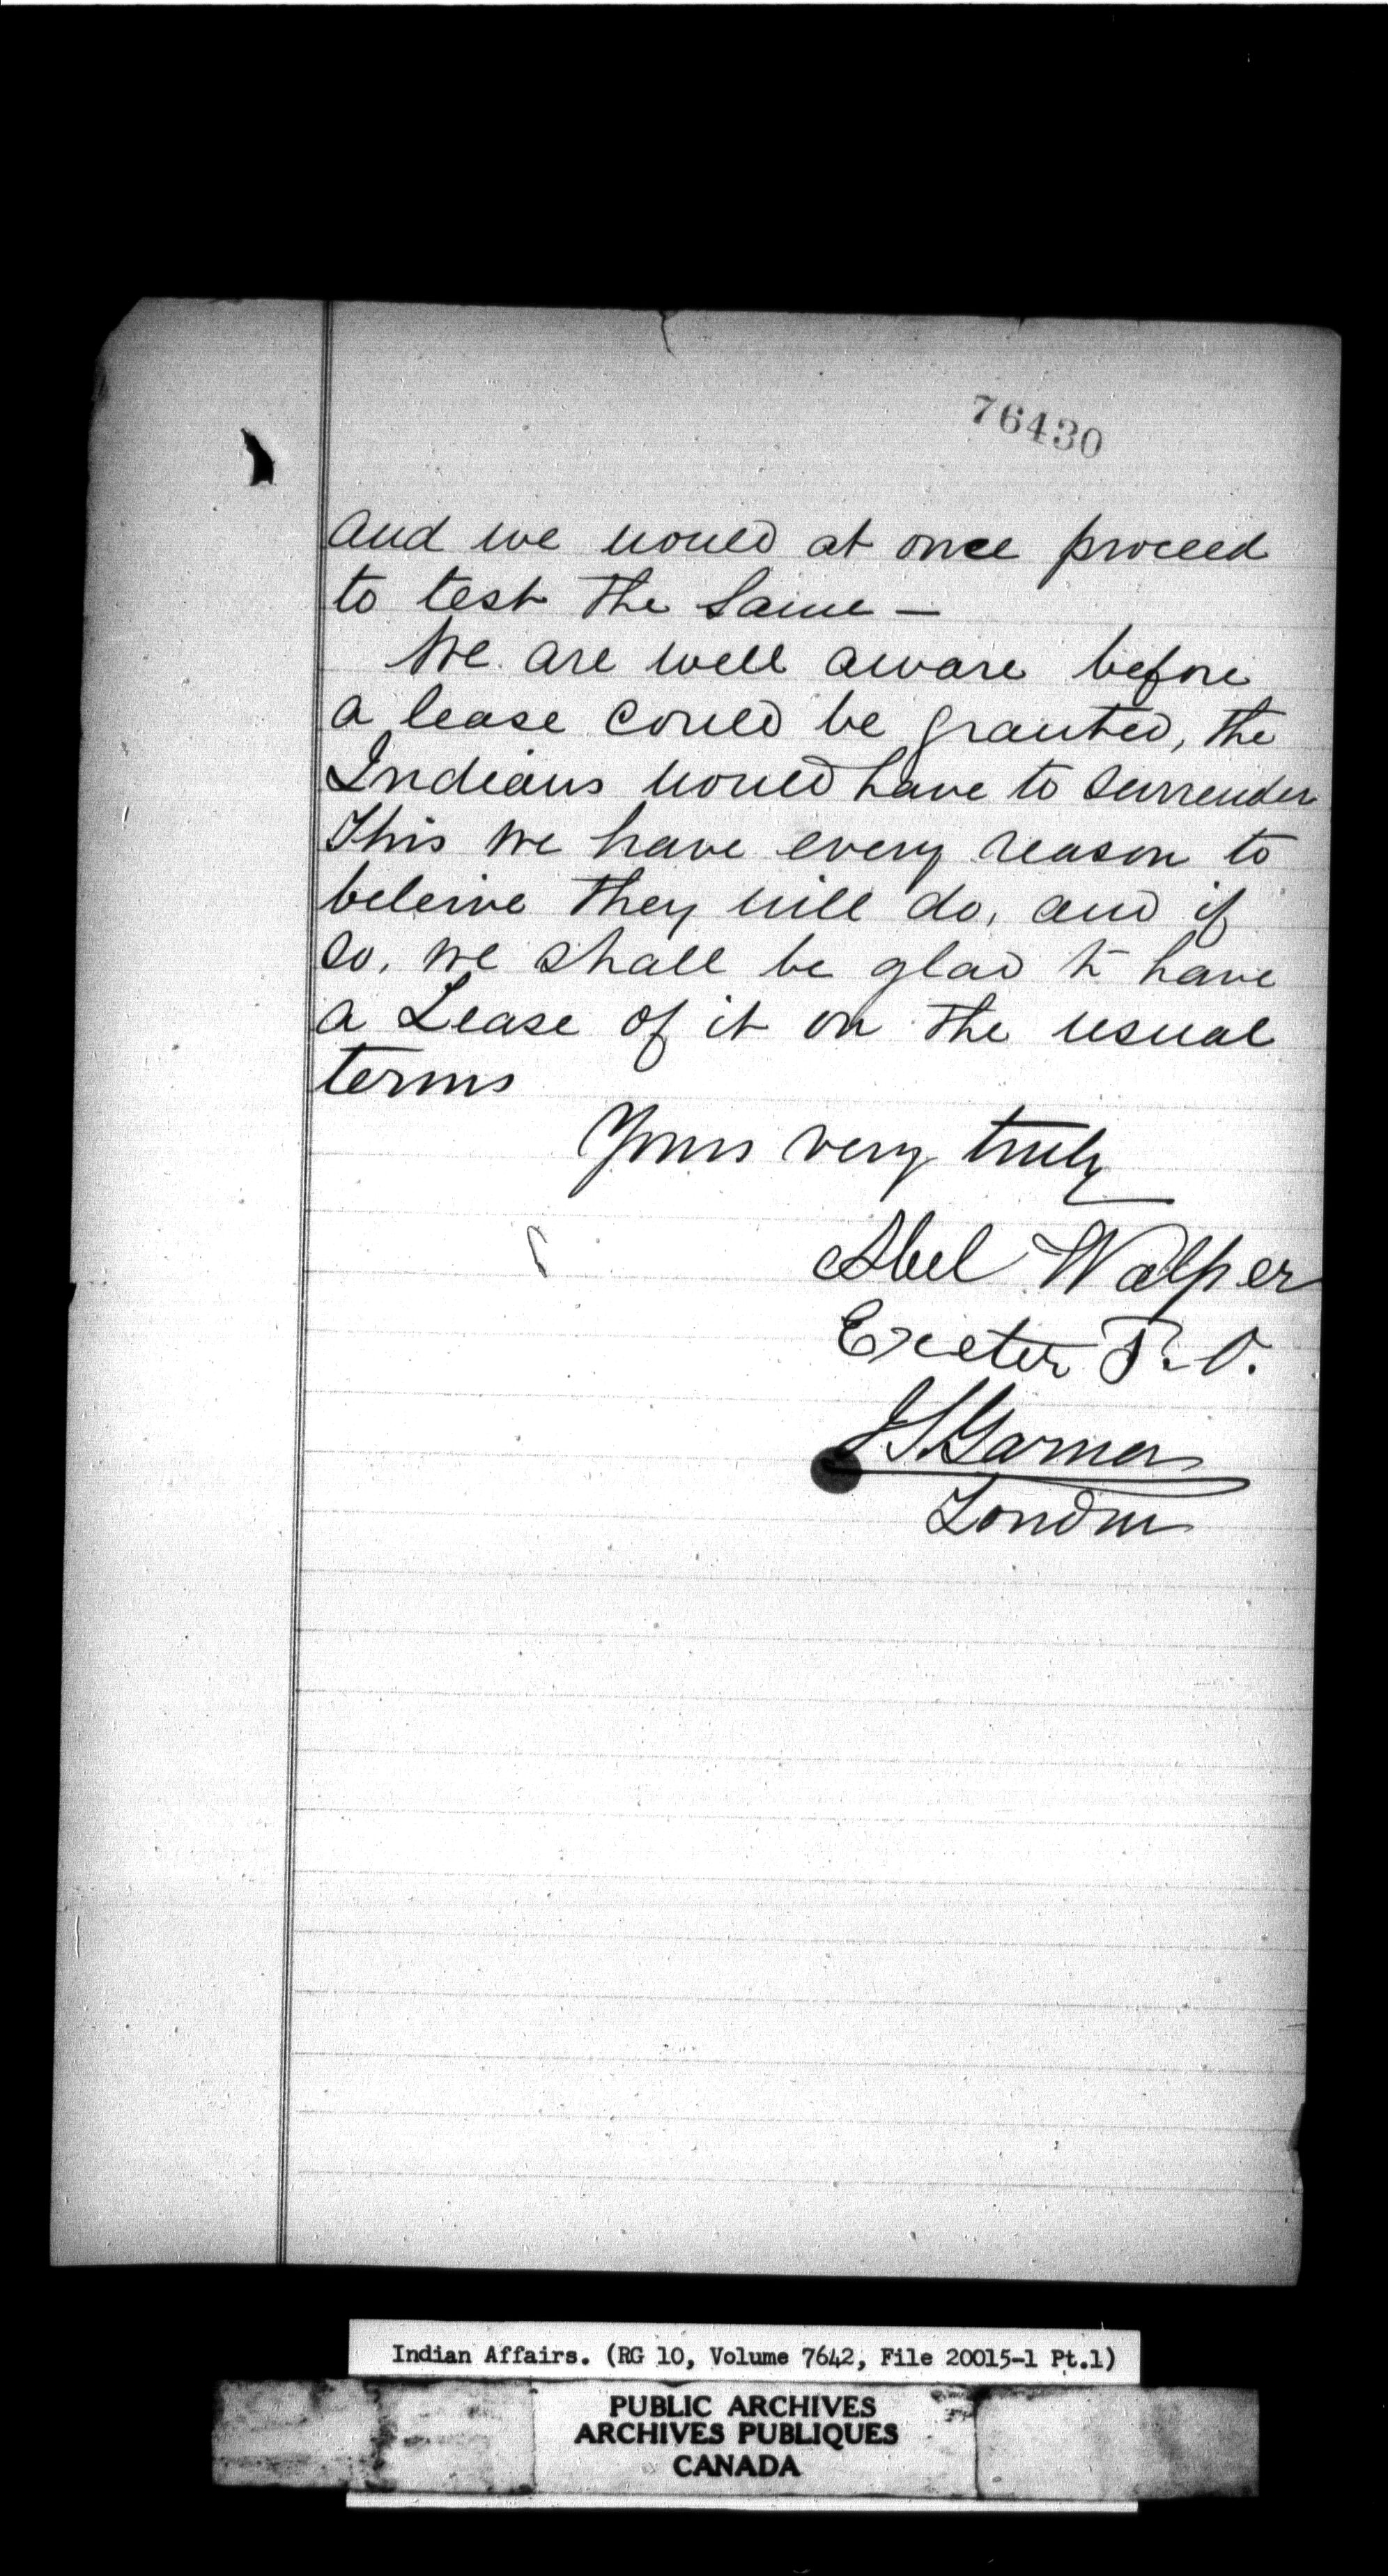 76430
and we would at once proceed
to test the same —
We are well aware before
a lease could be granted, the
Indians would have to surrender
This we have every reason to
beleive they will do, and if
so, we shall be glad to have
a Lease of it on the usual
terms
Yours very truly
Abel Walper
Exeter P.O.
J.S. Garner
London
Indian Affairs. (RG 10, Volume 7642, File 20015-1 Pt.1)
PUBLIC ARCHIVES
ARCHIVES PUBLIQUES
CANADA